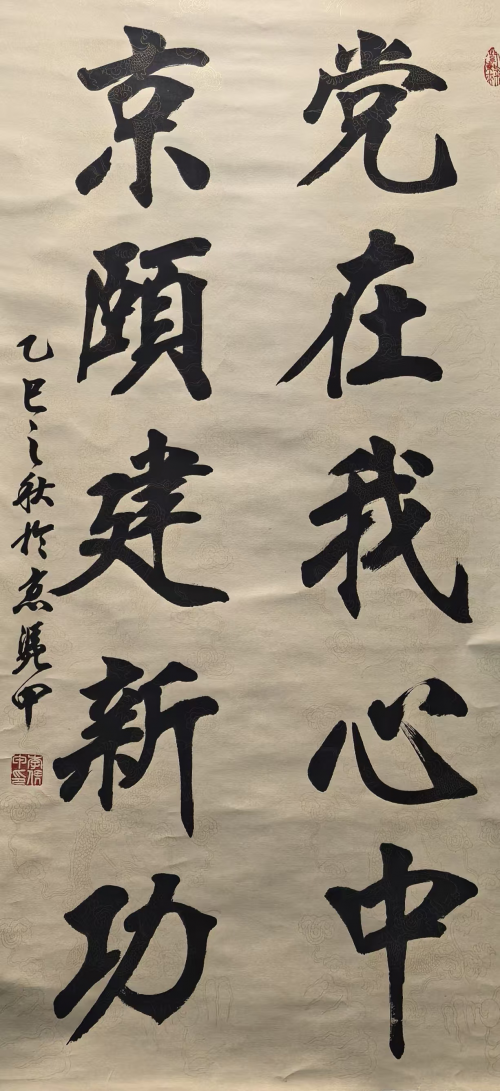 党在我心中
京颐建新功
乙巳之秋于京